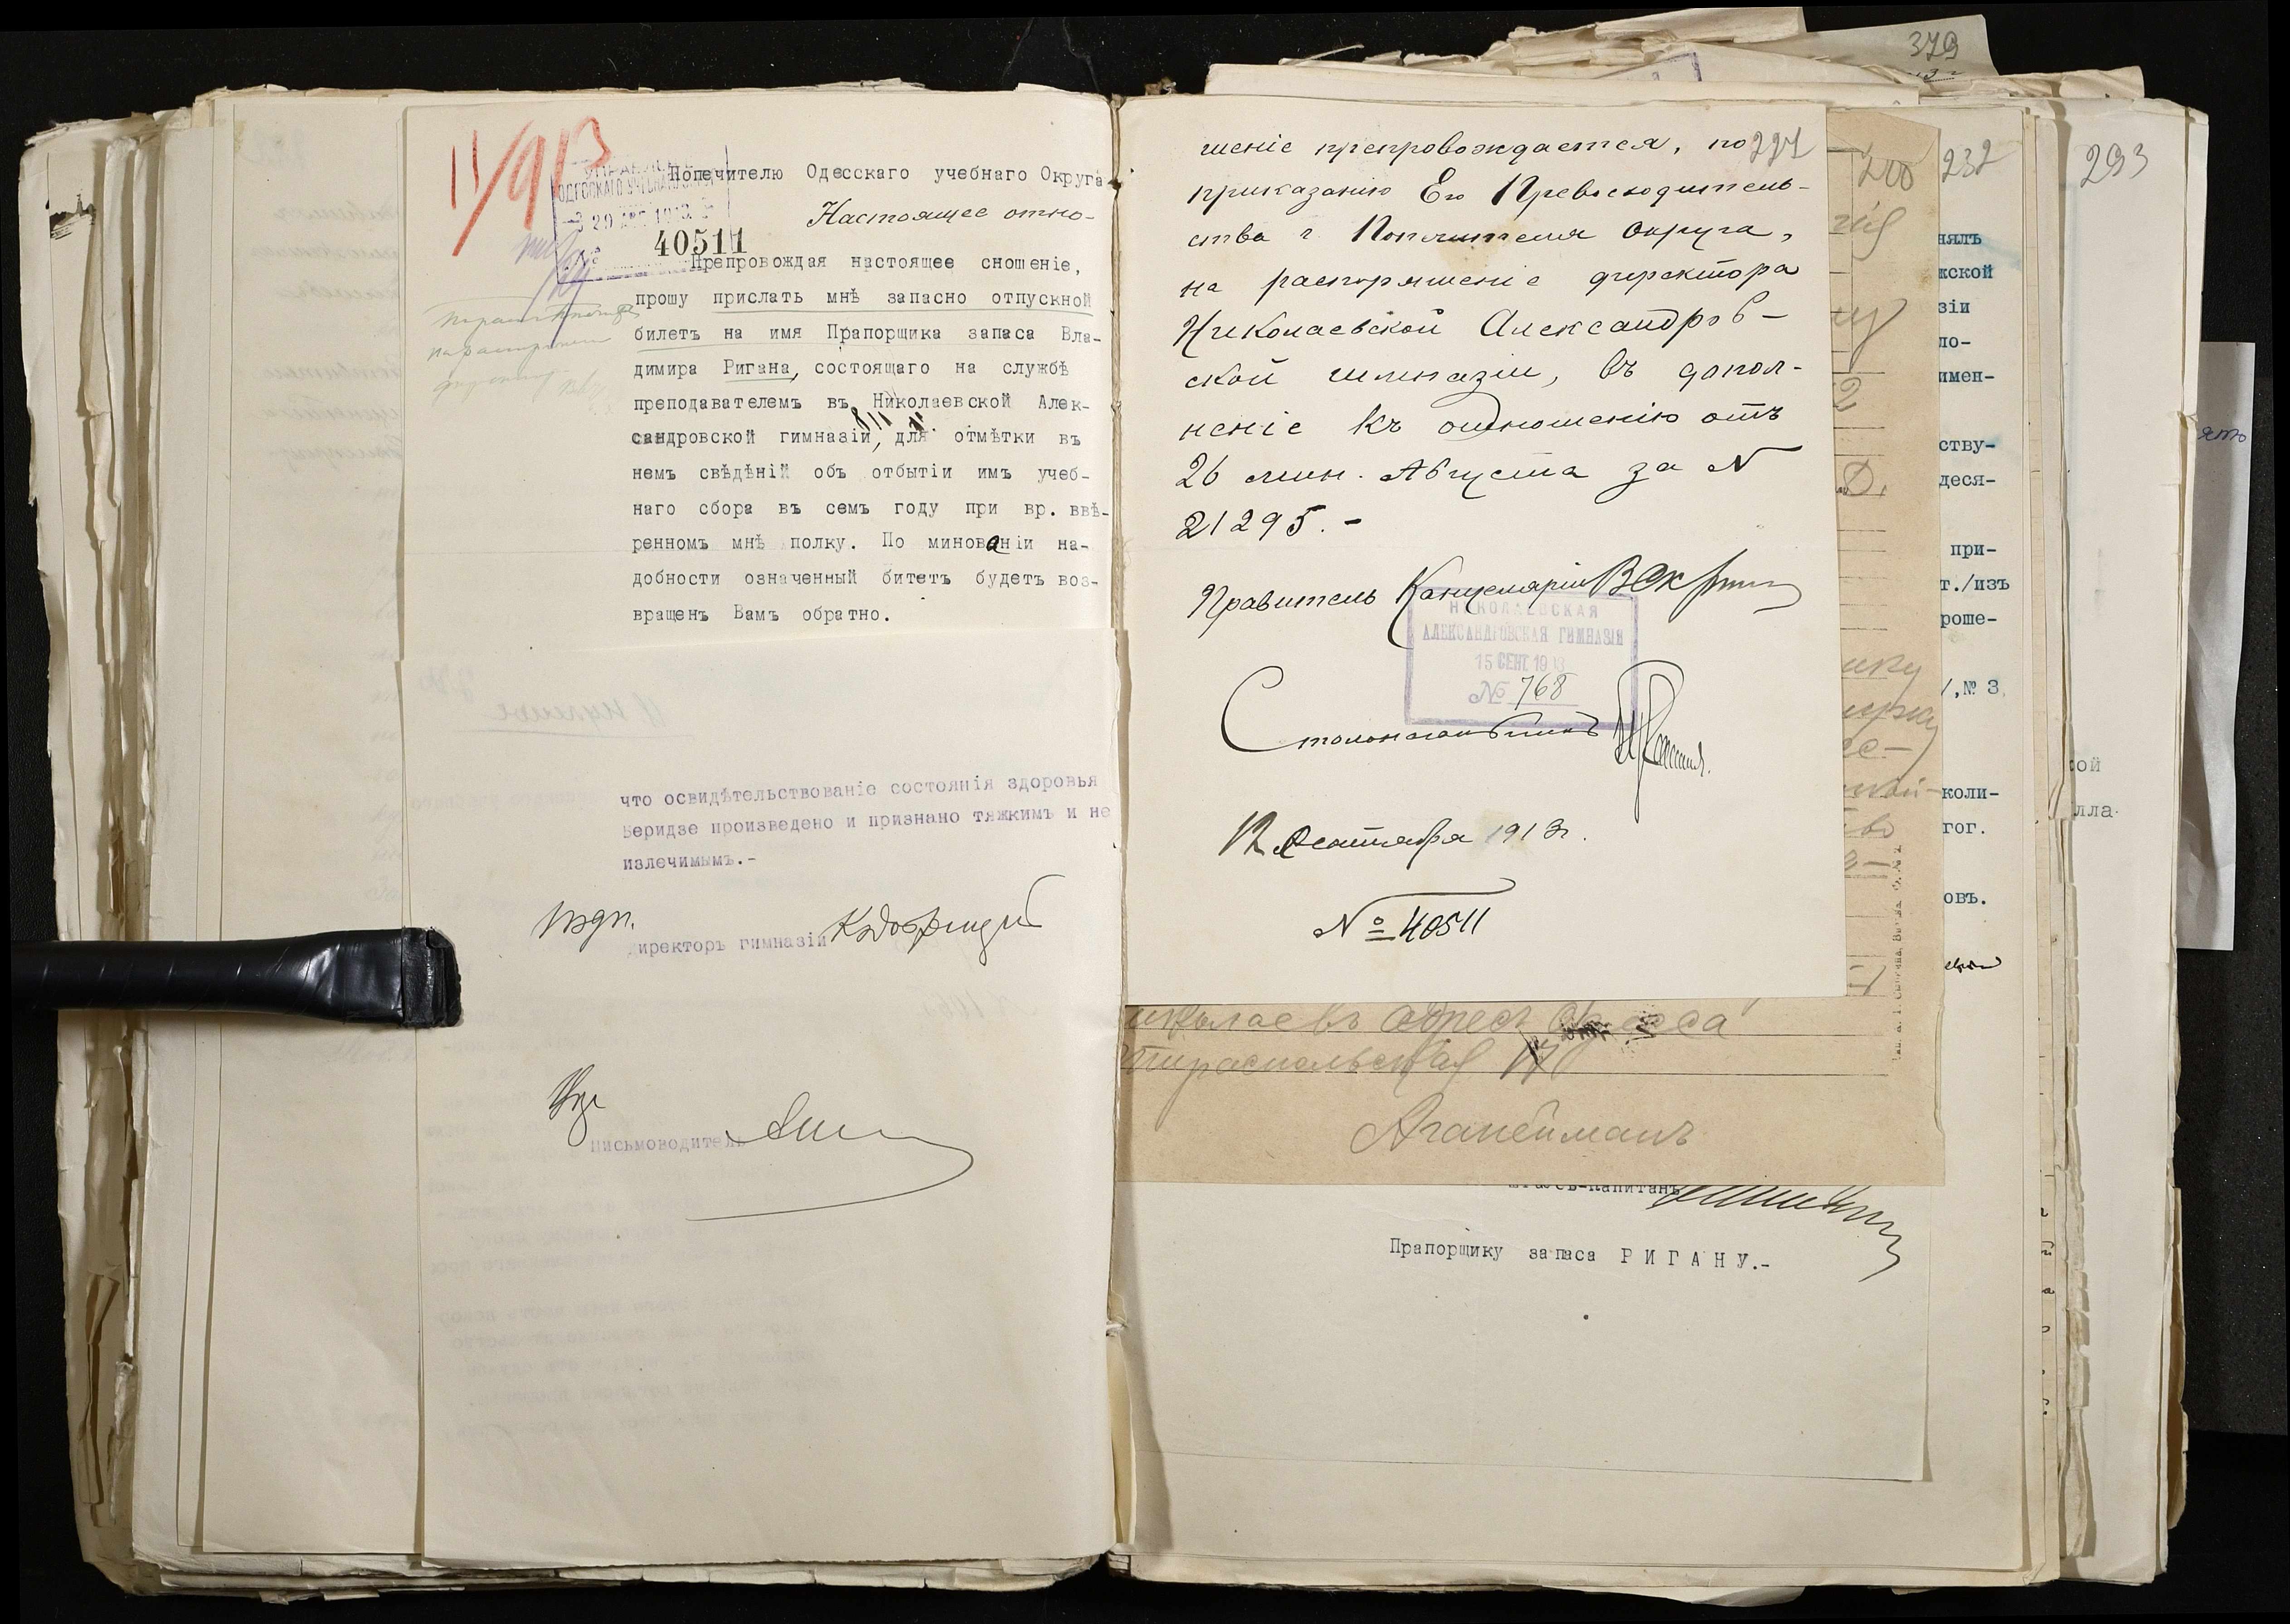 11/913
УПРАВЛЕНІЕ
ОДЕССКАГО УЧЕБНАГО
29 АВГ 1913
40511
Попечителю Одесскаго учебнаго Округа
Настоящее отно-
Препровождая настоящее сношеніе,
прошу прислать мнѣ запасно отпускной
билетъ на имя Прапорщика запаса Вла-
димира Ригана, состоящаго на службѣ
преподавателемъ въ Николаевской Алек-
сандровской гимназіи, для отмѣтки въ
немъ свѣдѣній объ отбытіи имъ учеб-
наго сбора въ семъ году при вр. ввѣ-
ренномъ мнѣ полку. По минованіи на-
добности означенный битетъ будетъ воз-
вращенъ Вамъ обратно.
что освидѣтельствованіе состоянія здоровья
Беридзе произведено и признано тяжкимъ и не
излечимымъ.-
директоръ гимназіи
Письмоводитель
шеніе препровождается, по
приказанію Его Превосходитель-
ства г. Попечителя Округа,
на распоряженіе директора
Николаевской Александров-
ской гимназіи, въ допол-
неніе къ отношенію отъ
26 мин. Августа за N
21295.-
Правитель Канцеляріи
НИКОЛАЕВСКАЯ
АЛЕКСАНДРОВСКАЯ ГИМНАЗІЯ
15 СЕНТ 1913
№ 768
Столоначальникъ
12 Сентября 1913 г.
№ 40511
николаевъ адресъ Одесса
тираспольская 17
Аганбиманъ
штабсъ-капитанъ
Прапорщику запаса Р И Г А Н У.-
200
232
нялъ
жской
зіи
ло-
имен-
ству-
деся-
при-
т./изъ
роше-
/,№ 3,
коли-
гог.
овъ.
293
сой
лла-
379